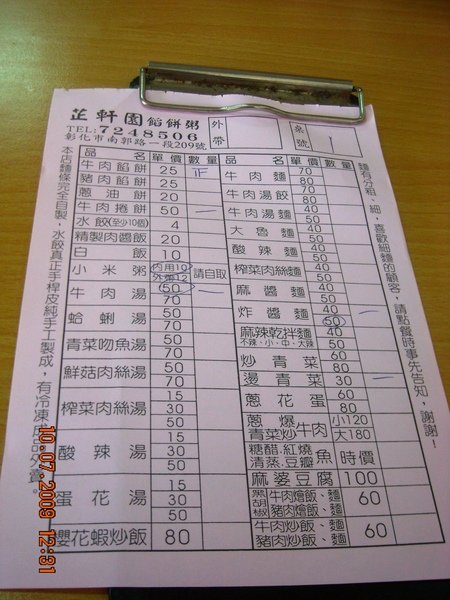 芷軒園餡餅粥
TEL:7248506
彰化市南郭路一段209號
外帶
桌號
本店麵條完全自製，水餃真正手桿皮純手工製成，有冷凍
品名 單價 數量
牛肉餡餅 25 正
豬肉餡餅 25
蔥油餅 20
牛肉捲餅 50 一
水餃(至少10個) 4
精製肉醬飯 20
白飯 10
小米粥 內用10 外帶12 請自取
牛肉湯 50 一
70
蛤蜊湯 50
70
青菜吻魚湯 50
70
鮮菇肉絲湯 50
70
榨菜肉絲湯 15
30
50
酸辣湯 15
30
50
蛋花湯 15
30
50
櫻花蝦炒飯 80
品名 單價 數量
牛肉麵 70
80
牛肉湯餃 70
80
牛肉湯麵 40
50
大魯麵 40
50
酸辣麵 40
50
榨菜肉絲麵 40
50
麻醬麵 40
50
炸醬麵 40
50 一
麻辣乾拌麵 40
不辣、小、中、大辣 50
炒青菜 40
60
燙青菜 30 一
蔥花蛋 60
80
蔥爆
青菜炒 牛肉 小120
大180
糖醋、紅燒
清蒸、豆瓣 魚 時價
麻婆豆腐 100
黑胡椒 牛肉燴飯、麵
豬肉燴飯、麵 60
牛肉炒飯、麵
豬肉炒飯、麵 60
麵有分粗、細，喜歡細麵的顧客，請點餐時事先告知，謝謝！
10.07.2009 12:31